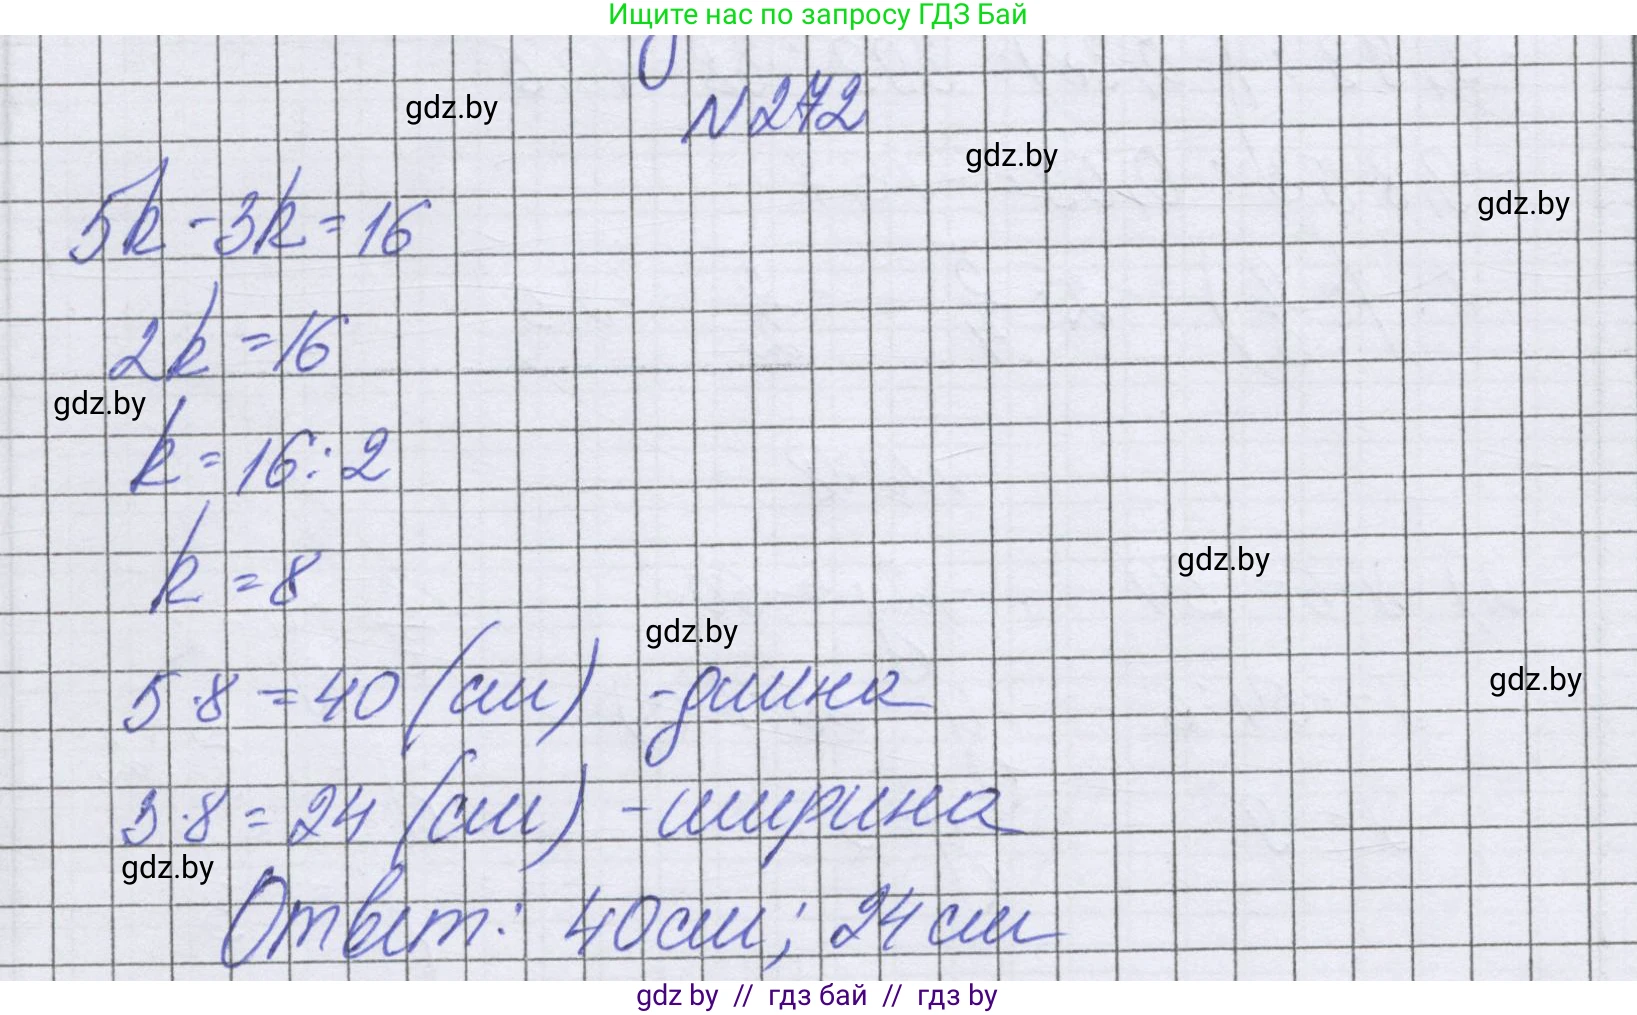 Ищите нас по запросу ГДЗ Бай
N272
gdz.by
gdz.by
gdz.by
5k - 3k = 16
2k = 16
gdz.by
k = 16 : 2
k = 8
gdz.by
gdz.by
5·8 = 40 (см) - длина
gdz.by
3·8 = 24 (см) - ширина
gdz.by
Ответ: 40см; 24см
gdz by // гдз бай // гдз by